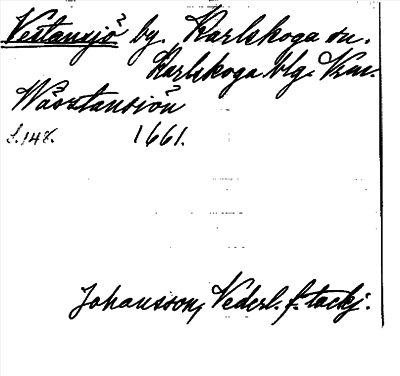 Vestansjö by. Karlskoga sn.
Karlskoga blg. Vrml.
Wäsztansiön
s. 148. 1661.
Johansson, Vederl. f. tackj.